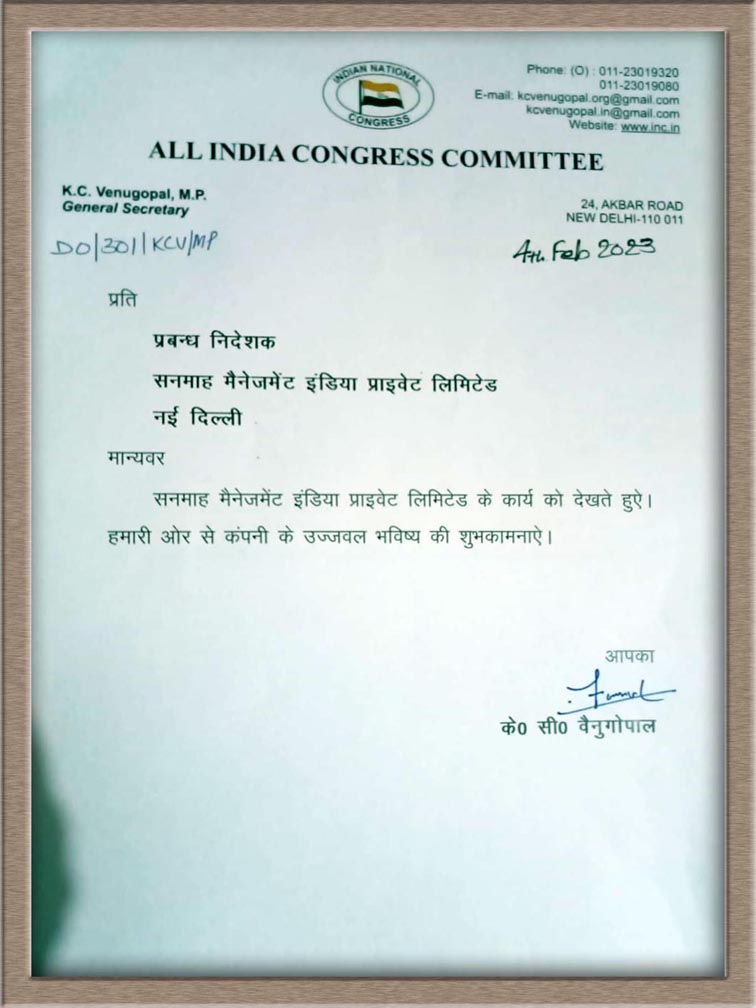 INDIAN NATIONAL
CONGRESS
Phone: (O) : 011-23019320
011-23019080
E-mail: kcvenugopal.org@gmail.com
kcvenugopal.in@gmail.com
Website: www.inc.in
ALL INDIA CONGRESS COMMITTEE
K.C. Venugopal, M.P.
General Secretary
24, AKBAR ROAD
NEW DELHI-110 011
DO/301/KCV/MP
4th Feb 2023
प्रति
प्रबन्ध निदेशक
सनमाह मैनेजमेंट इंडिया प्राइवेट लिमिटेड
नई दिल्ली
मान्यवर
सनमाह मैनेजमेंट इंडिया प्राइवेट लिमिटेड के कार्य को देखते हुऐ।
हमारी ओर से कंपनी के उज्जवल भविष्य की शुभकामनाऐ।
आपका
के0 सी0 वैनुगोपाल